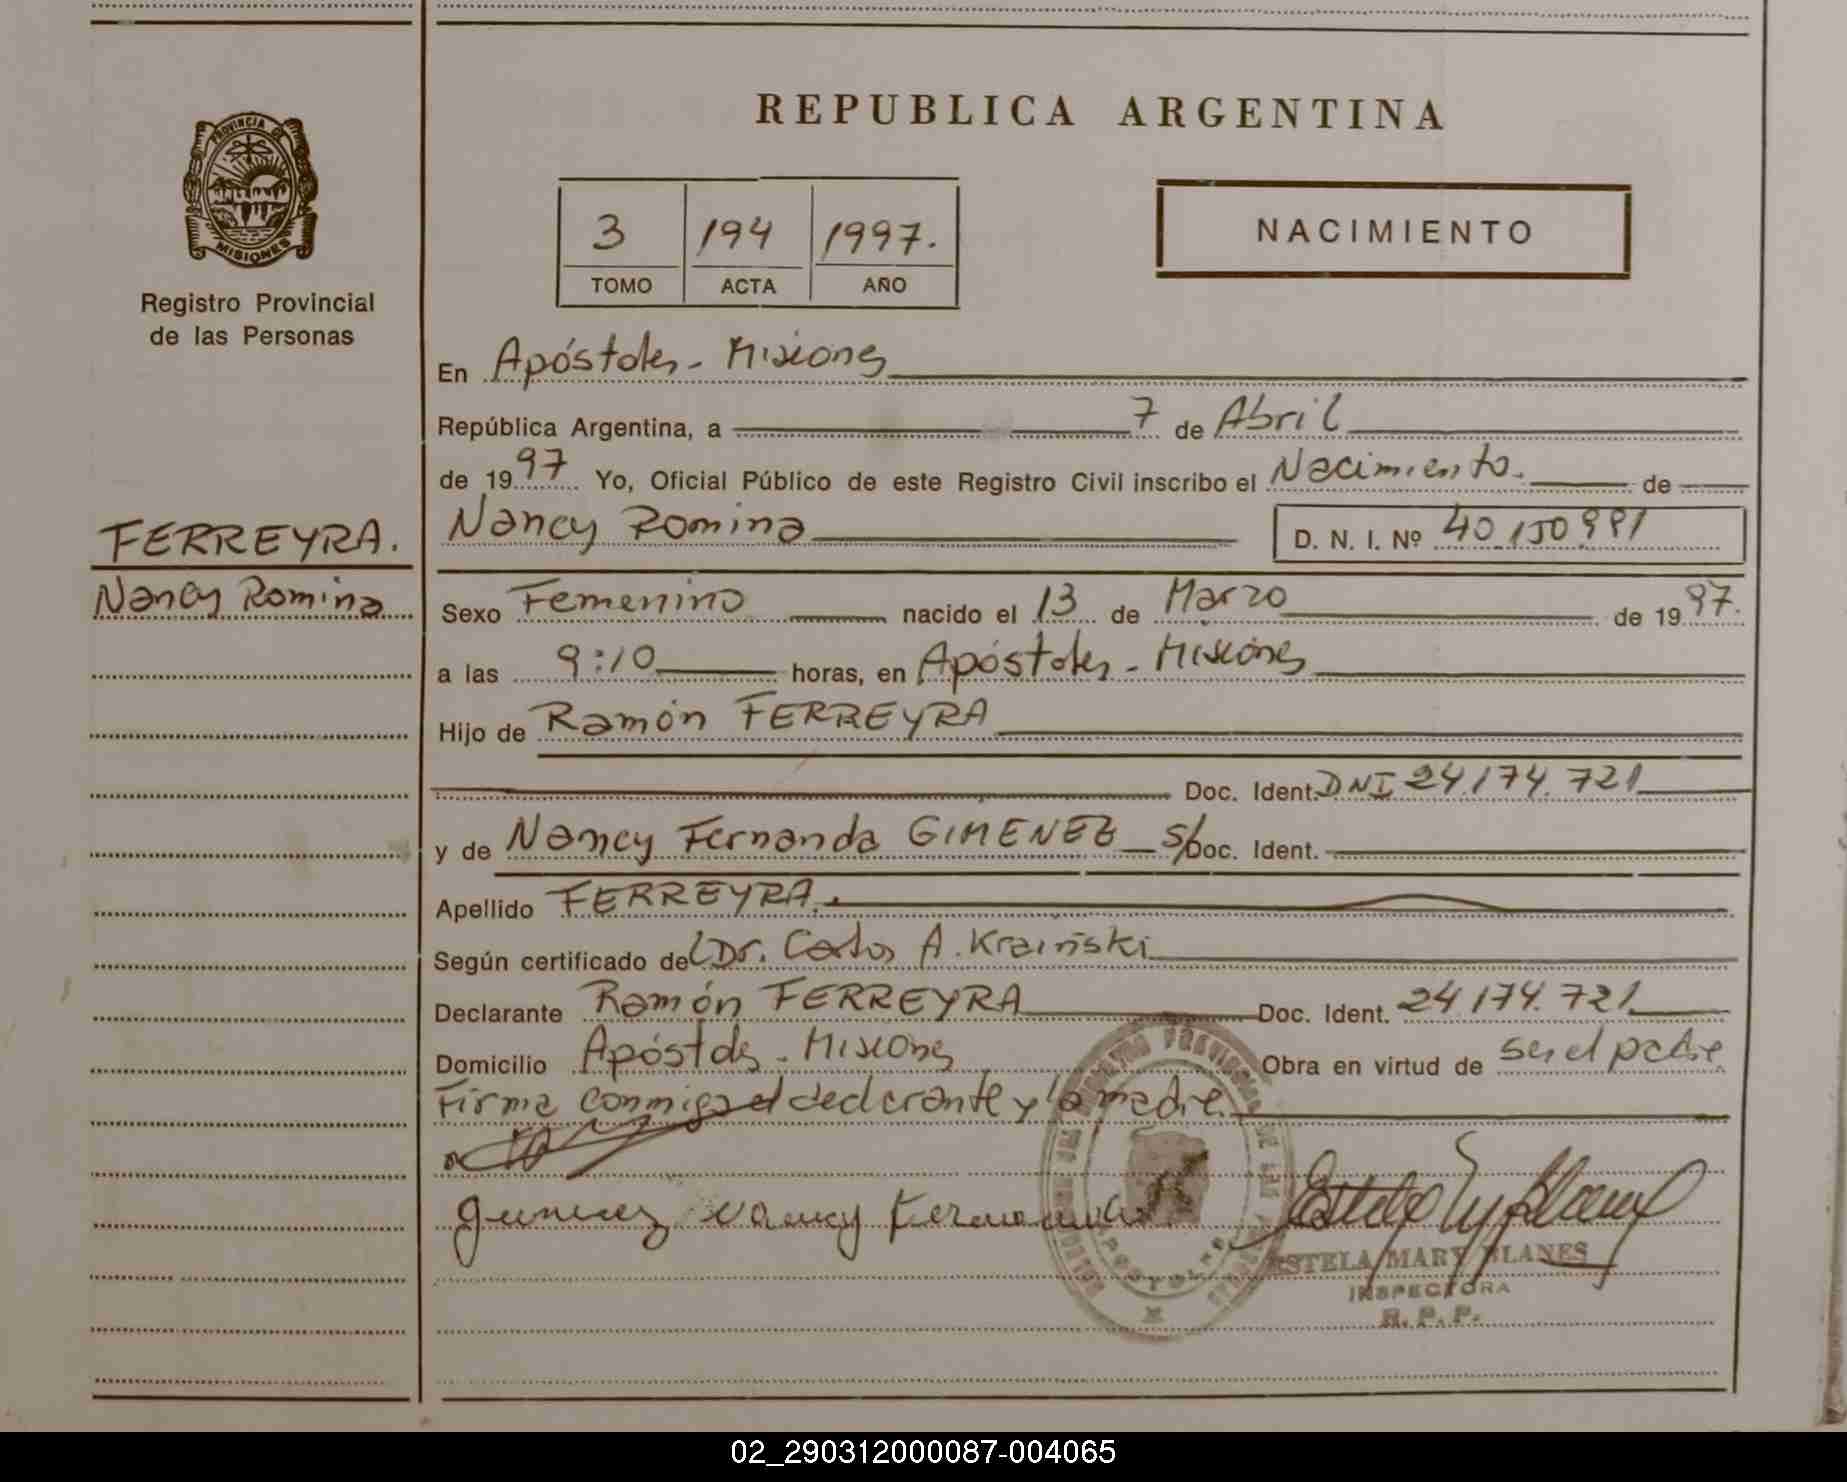 REPUBLICA ARGENTINA
PROVINCIA DE
MISIONES
Registro Provincial
de las Personas
3 194 1997.
TOMO ACTA AÑO
NACIMIENTO
En Apóstoles - Misiones
República Argentina, a 7 de Abril
de 1997 Yo, Oficial Público de este Registro Civil inscribo el Nacimiento. de
Nancy Romina D. N. I. Nº 40.150.991
FERREYRA.
Nancy Romina
Sexo Femenino nacido el 13 de Marzo de 1997.
a las 9:10 horas, en Apóstoles - Misiones
Hijo de Ramón FERREYRA
Doc. Ident. DNI 24.174.721
y de Nancy Fernanda GIMENEZ s/Doc. Ident.
Apellido FERREYRA.
Según certificado del Dr. Carlos A. Kraiñski
Declarante Ramón FERREYRA Doc. Ident. 24.174.721
Domicilio Apóstoles - Misiones Obra en virtud de ser el padre
Firma conmigo el declarante y la madre.
Gimenez Nancy Fernanda
ESTELA MARY BLANES
INSPECTORA
R. P. P.
APOSTOLES
02_290312000087-004065